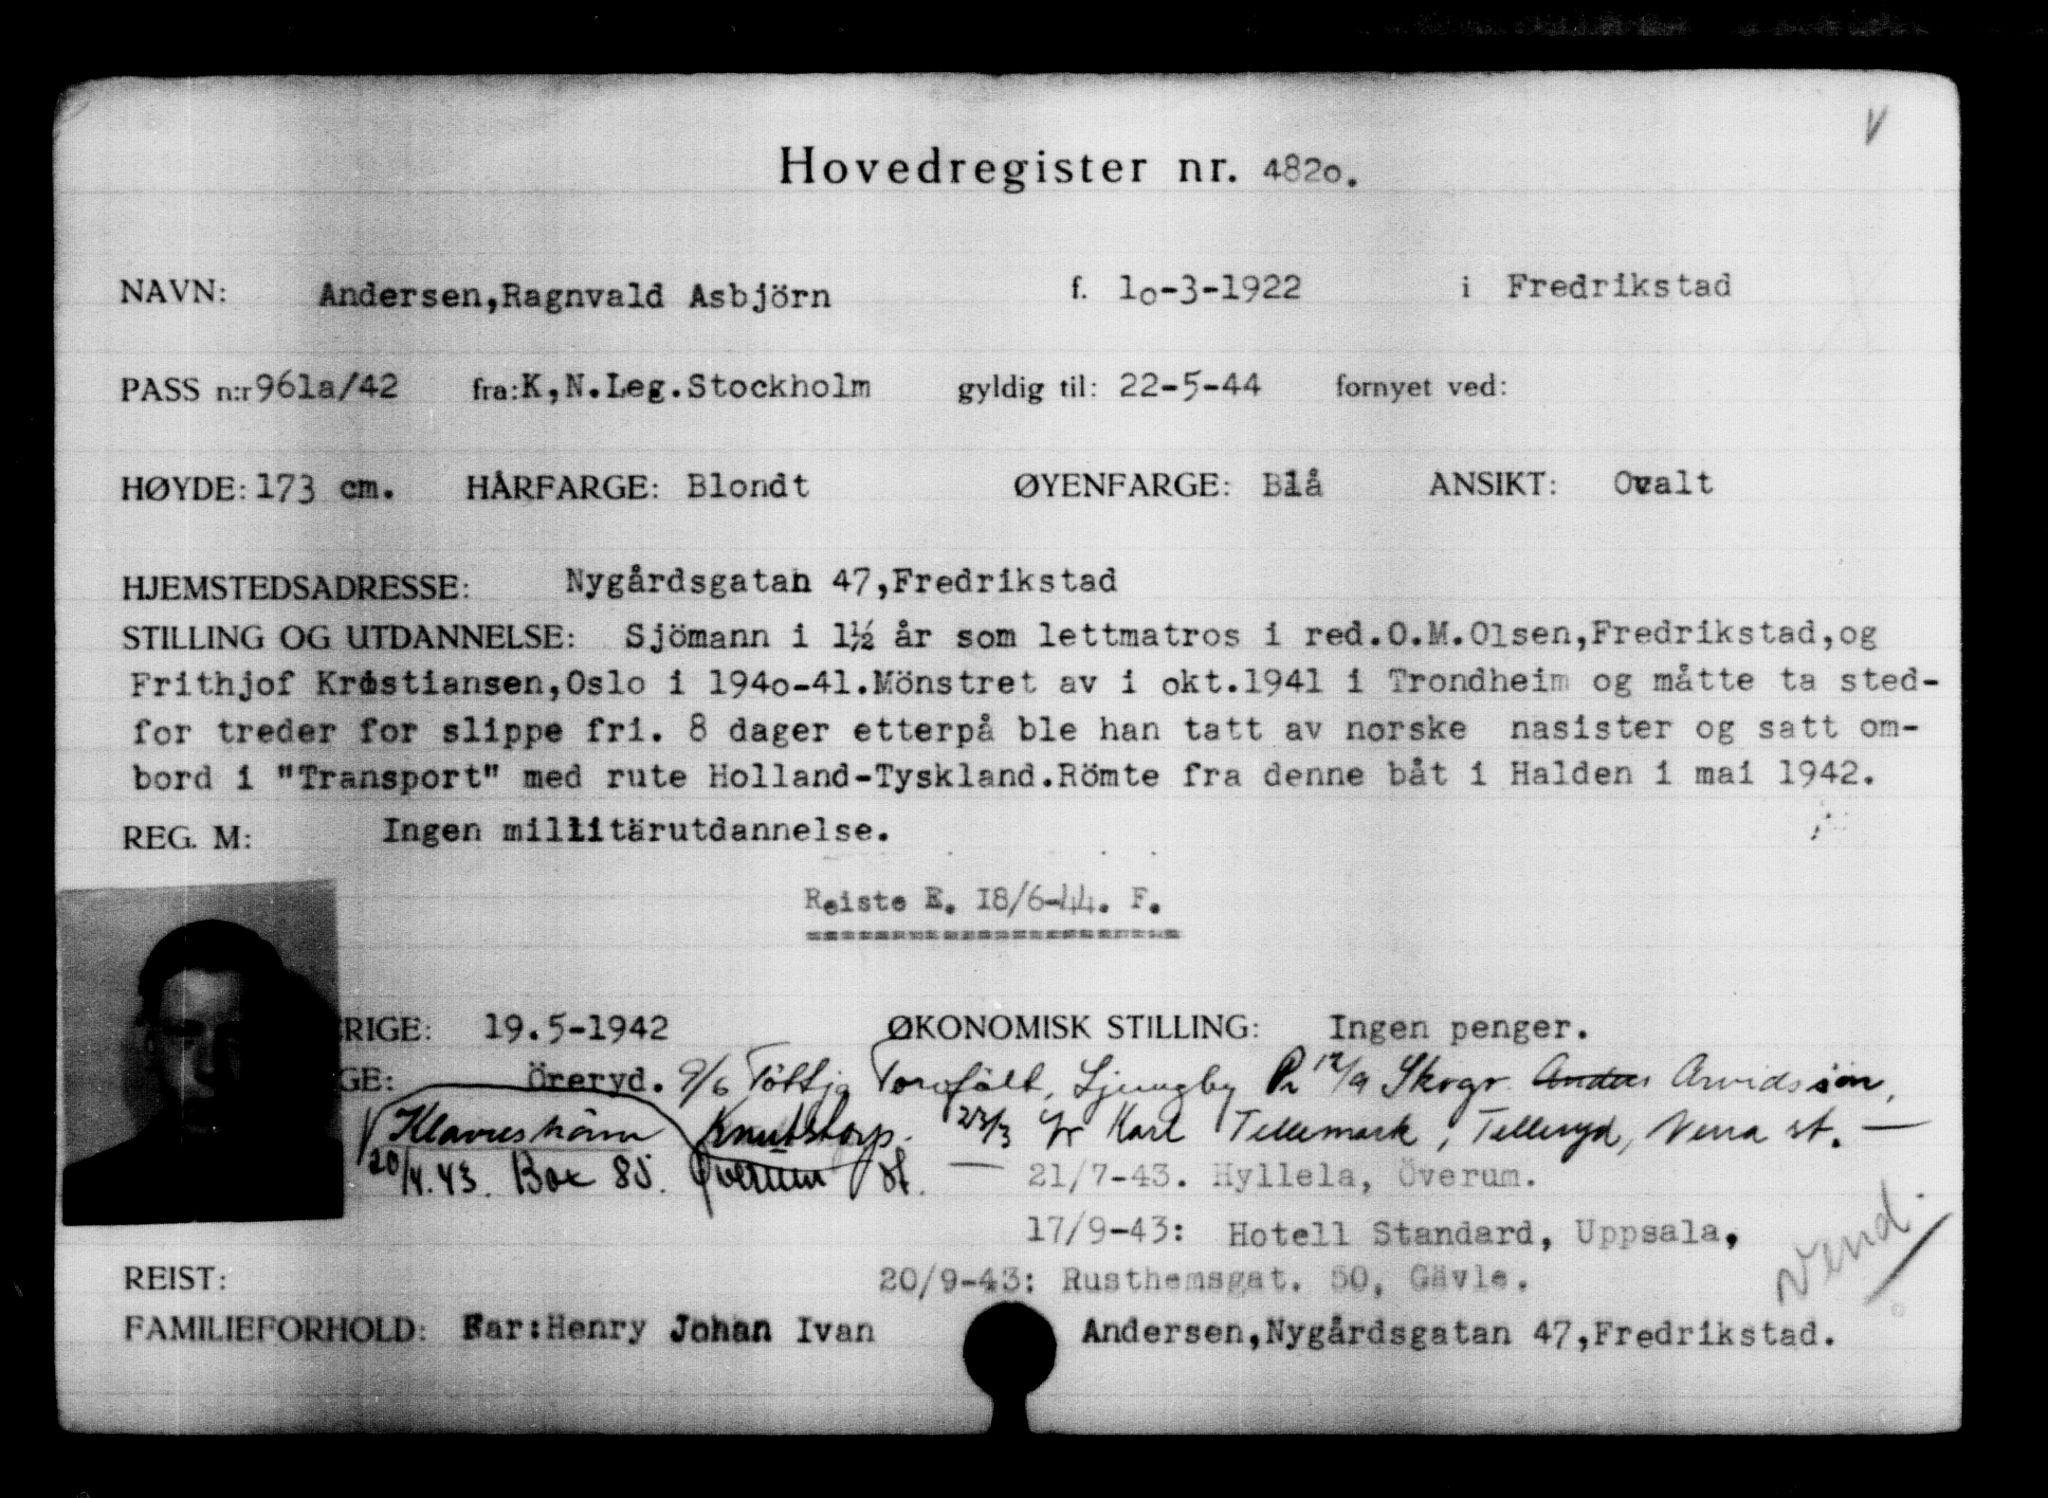 V
Hovedregister nr. 4820.
NAVN: Andersen,Ragnvald Asbjörn f. 10-3-1922 i Fredrikstad
PASS n:r 961a/42 fra: K,N.Leg.Stockholm gyldig til: 22-5-44 fornyet ved:
HØYDE: 173 cm. HÅRFARGE: Blondt ØYENFARGE: Blå ANSIKT: Ovalt
HJEMSTEDSADRESSE: Nygårdsgatan 47,Fredrikstad
STILLING OG UTDANNELSE: Sjömann i 1½ år som lettmatros i red.O.M.Olsen,Fredrikstad,og
Frithjof Kristiansen,Oslo i 1940-41.Mönstret av i okt.1941 i Trondheim og måtte ta sted-
for treder for slippe fri. 8 dager etterpå ble han tatt av norske nasister og satt om-
bord i "Transport" med rute Holland-Tyskland.Römte fra denne båt i Halden i mai 1942.
REG. M: Ingen millitärutdannelse.
Reiste E. I8/6-44. F.
RIGE: 19.5-1942 ØKONOMISK STILLING: Ingen penger.
GE: Öreryd. 9/6 Töttja Torpfält, Ljungby 12/9 Skogv. Anders Arvidsson,
Knutstorp. 23/3 Karl Tellemark, Telleryd, Verra st. —
20/4.43. Box 85. Överum st. — 21/7-43. Hyllela, Överum.
17/9-43: Hotell Standard, Uppsala,
Vend.
REIST: 20/9-43: Rusthemsgat. 50, Gävle.
FAMILIEFORHOLD: Far:Henry Johan Ivan Andersen,Nygårdsgatan 47,Fredrikstad.